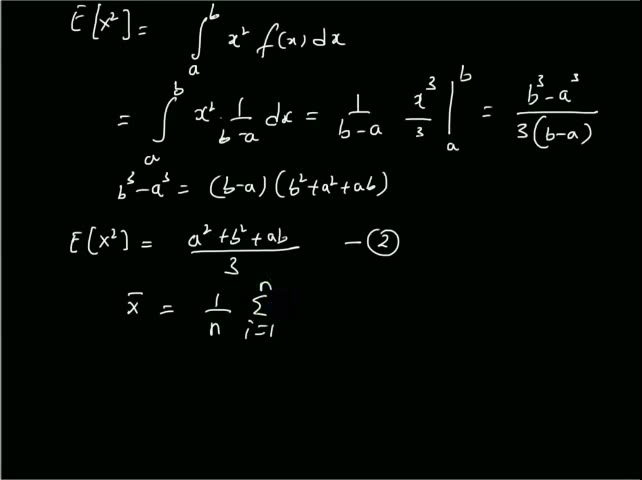 E[x²] = ∫ₐᵇ x² f(x) dx
= ∫ₐᵇ x² · 1/(b-a) dx = 1/(b-a) x³/3 |ₐᵇ = (b³-a³)/(3(b-a))
b³-a³ = (b-a)(b²+a²+ab)
E[x²] = (a²+b²+ab)/3 — ②
x̄ = 1/n Σᵢ₌₁ⁿ